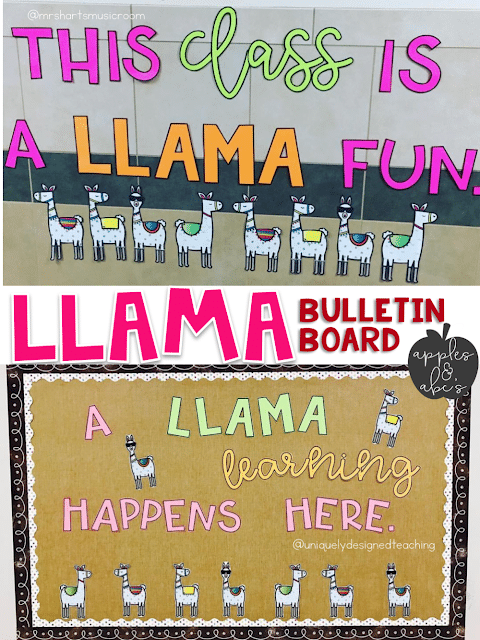 @mrshartsmusicroom
THIS class IS
A LLAMA FUN.
LLAMA
BULLETIN
BOARD
apples
&
abc's
A LLAMA
learning
HAPPENS HERE.
@uniquelydesignedteaching